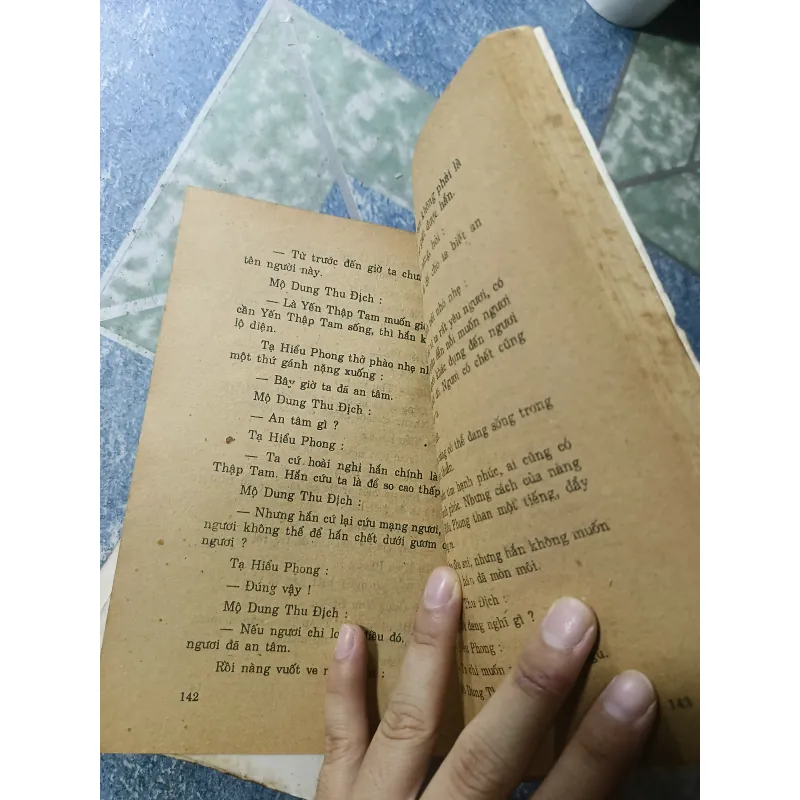 — Từ trước đến giờ ta
tên người này.
Mộ Dung Thu Địch :
— Là Yến Thập Tam muốn
cần Yến Thập Tam sống, thì hắn
lộ diện.
Tạ Hiểu Phong thở phào nhẹ
một thứ gánh nặng xuống :
— Bây giờ ta đã an tâm.
Mộ Dung Thu Địch :
— An tâm gì ?
Tạ Hiểu Phong :
— Ta cứ hoài nghi hắn chính là
Thập Tam. Hắn cứu ta là để so cao thấp
Mộ Dung Thu Địch :
— Nhưng hắn cứ lại cứu mạng ngươi,
ngươi không thể để hắn chết dưới gươm
ngươi ?
Tạ Hiểu Phong :
— Đúng vậy !
Mộ Dung Thu Địch :
— Nếu ngươi chỉ đó,
ngươi đã an tâm.
Rồi nàng vuốt ve :
142
không phải là
được hắn.
hỏi :
cho ta biết an
nhỏ nhẹ :
ta rất yêu ngươi, có
nỗi muốn ngươi
khác đụng đến ngươi
đi. Ngươi có chết cũng
có thể đang sống trong
hạnh phúc, ai cũng có
phúc. Nhưng cách của nàng
Phong than một tiếng, đầy
nhưng hắn không muốn
đã mòn mỏi.
Thu Địch :
đang nghĩ gì ?
Phong :
chỉ muốn
Dung
143